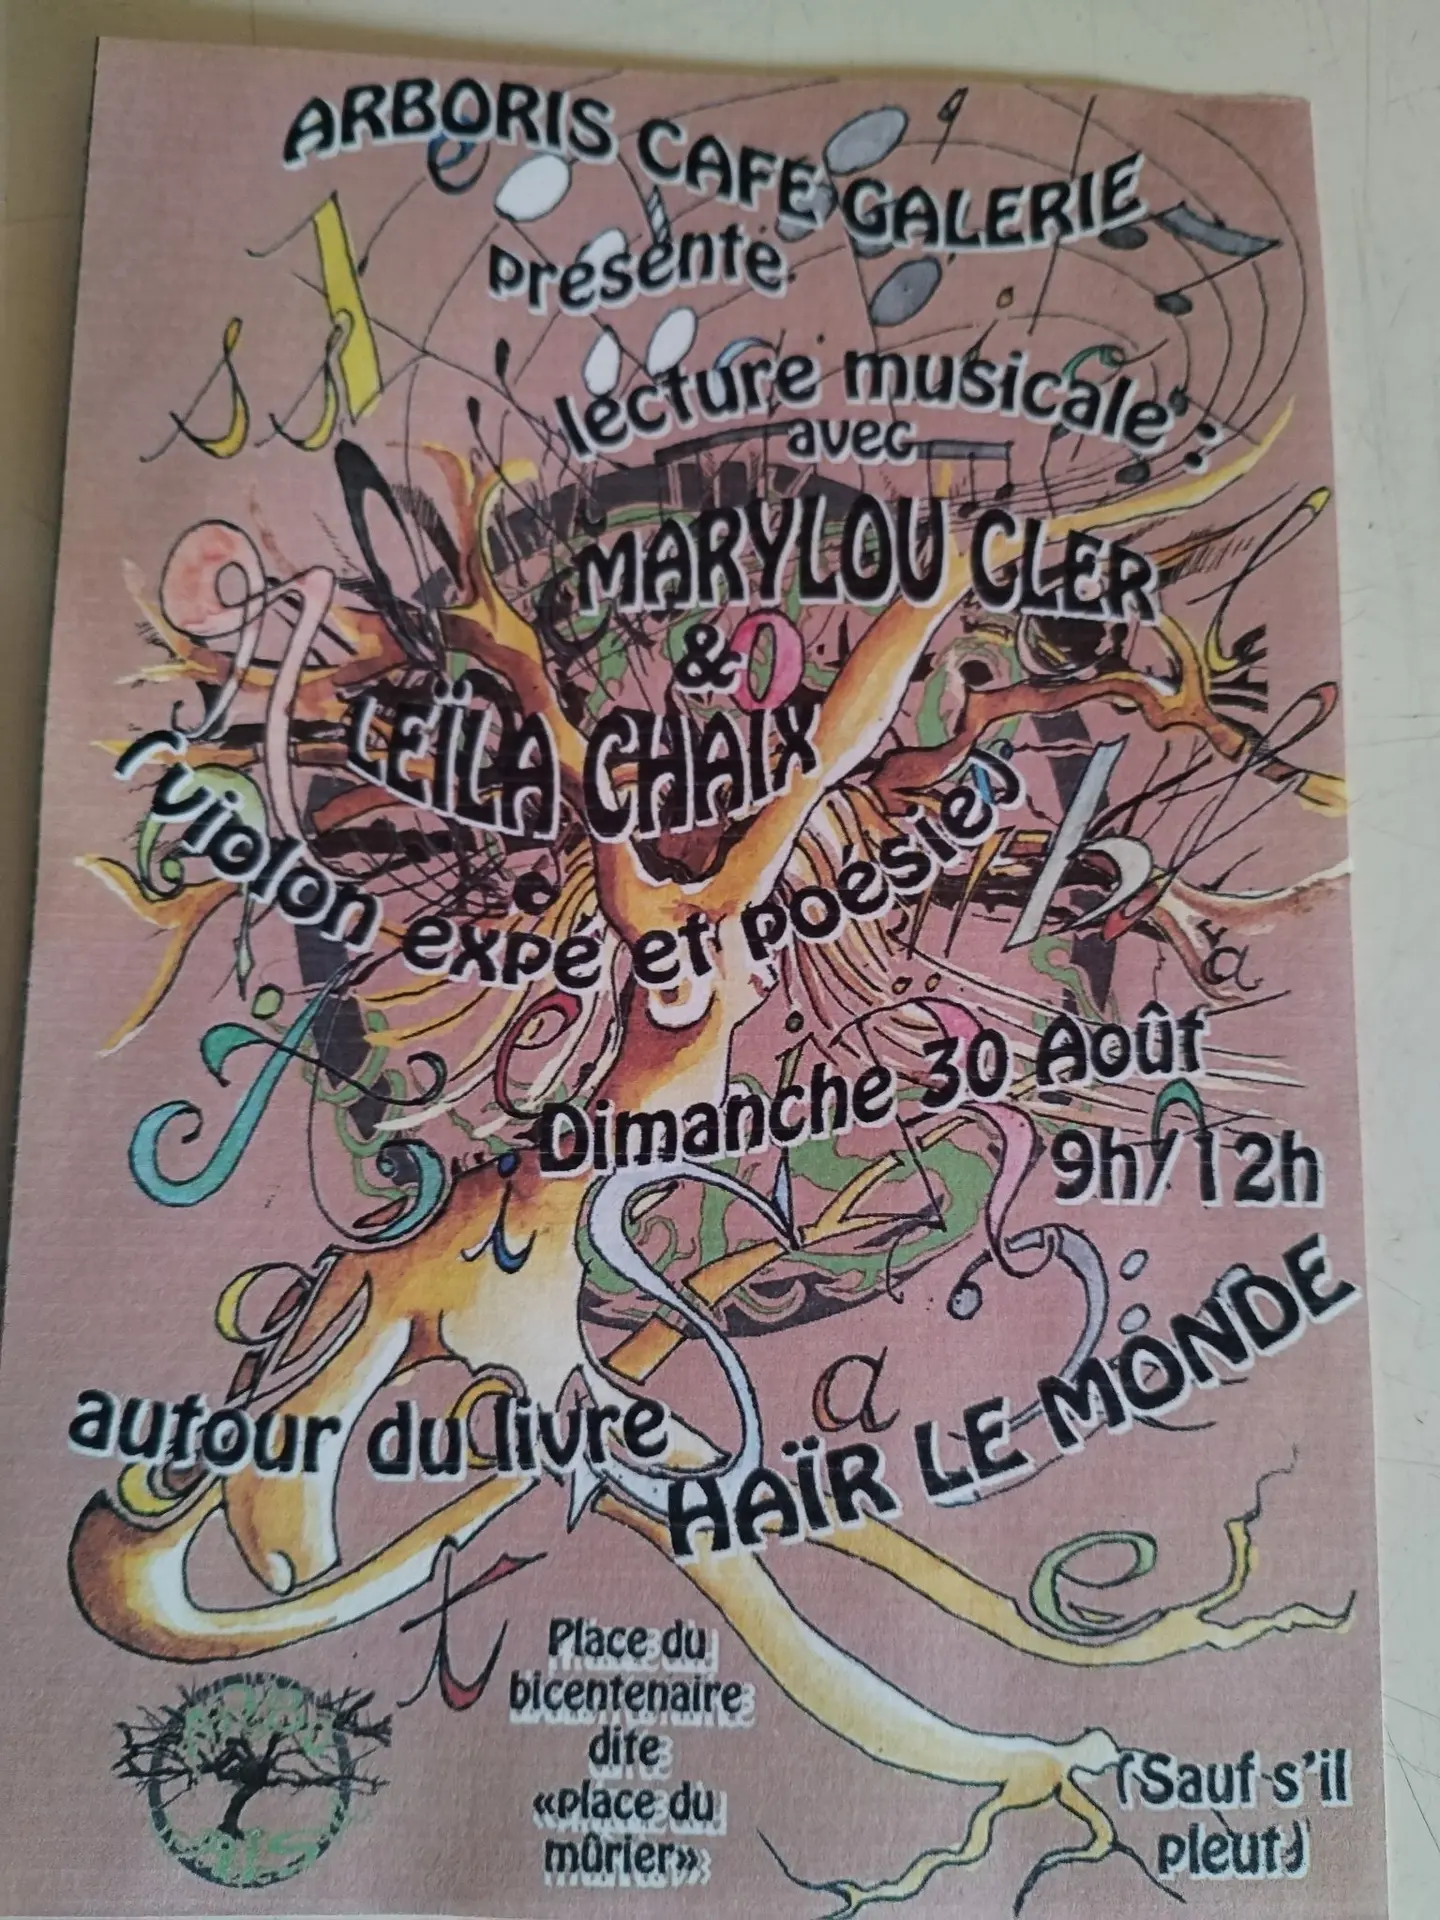 ARBORIS CAFE GALERIE
présente
lecture musicale :
avec
MARYLOU CLER
&
LEÏLA CHAIX
(violon expé et poésies)
Dimanche 30 Août
9h/12h
autour du livre
HAÏR LE MONDE
Place du
bicentenaire
dite
«place du
mûrier»
(Sauf s'il
pleut)